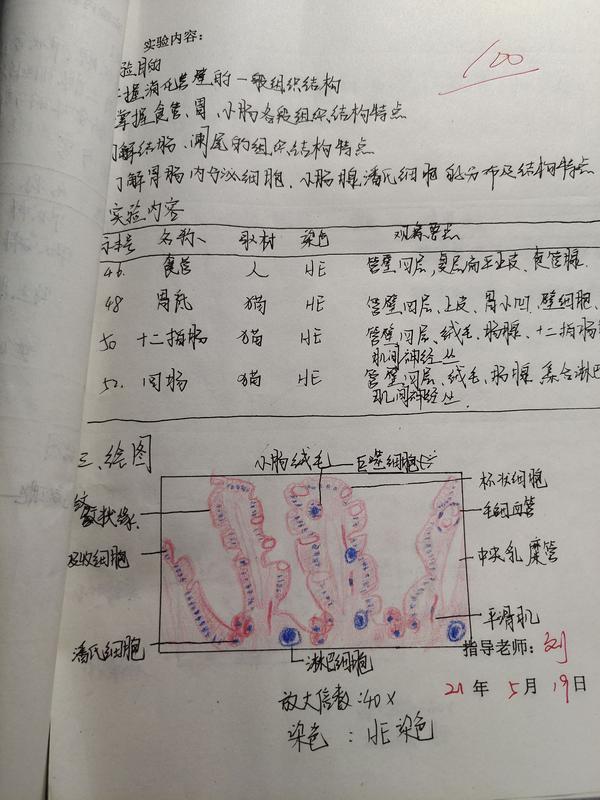 实验内容:
100
验目的
掌握消化管壁的一般组织结构
掌握食管、胃、小肠各段组织结构特点
了解结肠、阑尾的组织结构特点
了解胃肠内分泌细胞、小肠腺潘氏细胞的分布及结构特点
实验内容
名称 取材 染色 观察要点
46. 食管 人 HE 管壁四层,复层扁平上皮、食管腺.
48 胃底 猫 HE 管壁四层、上皮、胃小凹、壁细胞、
50 十二指肠 猫 HE 管壁四层、绒毛、肠腺、十二指肠
肌间神经丛
52. 回肠 猫 HE 管壁四层、绒毛、肠腺、集合淋巴
肌间神经丛.
三.绘图
小肠绒毛 巨噬细胞
杯状细胞
纹状缘
毛细血管
吸收细胞
中央乳糜管
平滑肌
潘氏细胞
淋巴细胞
指导老师: 刘
放大倍数:40×
21 年 5 月 19 日
染色 : HE染色